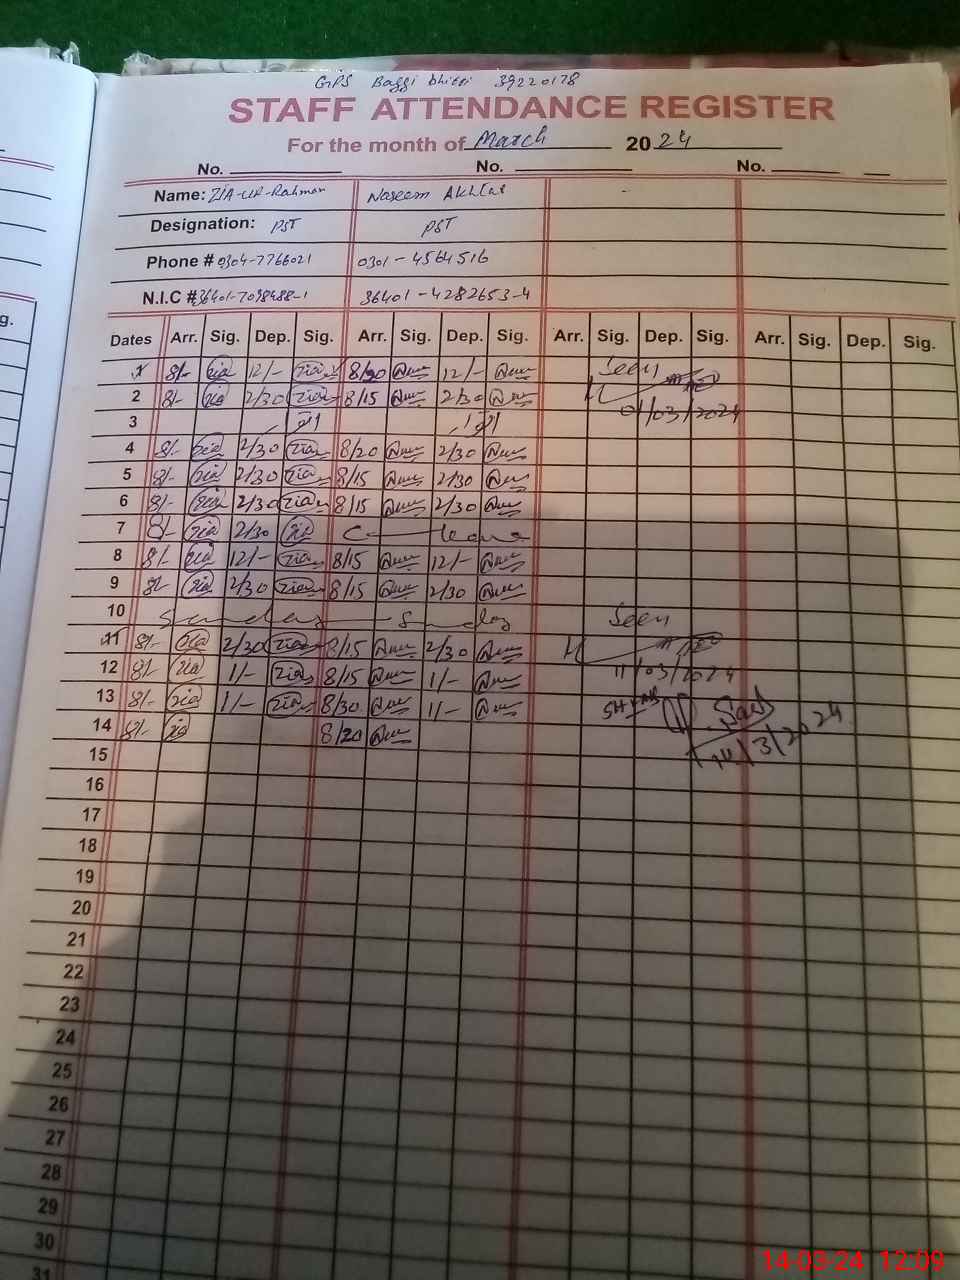 GPS Baggi bhitti 39220178
STAFF ATTENDANCE REGISTER
For the month of March 2024
No. No. No.
Name: ZIA-UR-Rahman Naseem Akhtar -
Designation: PST PST
Phone # 0304-7766021 0301-4564516
N.I.C # 36401-7098488-1 36401-4282653-4
g.
Dates Arr. Sig. Dep. Sig. Arr. Sig. Dep. Sig. Arr. Sig. Dep. Sig. Arr. Sig. Dep. Sig.
1 8/- zia 12/- zia 8/20 12/- Seen
2 8/- zia 2/30 zia 8/15 2/30 01/03/2024
3 اتوار اتوار
4 8/- zia 2/30 zia 8/20 2/30
5 8/- zia 2/30 zia 8/15 2/30
6 8/- zia 2/30 zia 8/15 2/30
7 8/- zia 2/30 zia C Leave
8 8/- zia 12/- zia 8/15 12/-
9 8/- zia 2/30 zia 8/15 2/30
10 Sunday Sunday Seen
11 8/- zia 2/30 zia 8/15 2/30
12 8/- zia 1/- zia 8/15 1/- 11/03/2024
13 8/- zia 1/- zia 8/30 1/-
14 8/- zia 8/20 14/3/2024
15
16
17
18
19
20
21
22
23
24
25
26
27
28
29
30
31
14-03-24 12:09